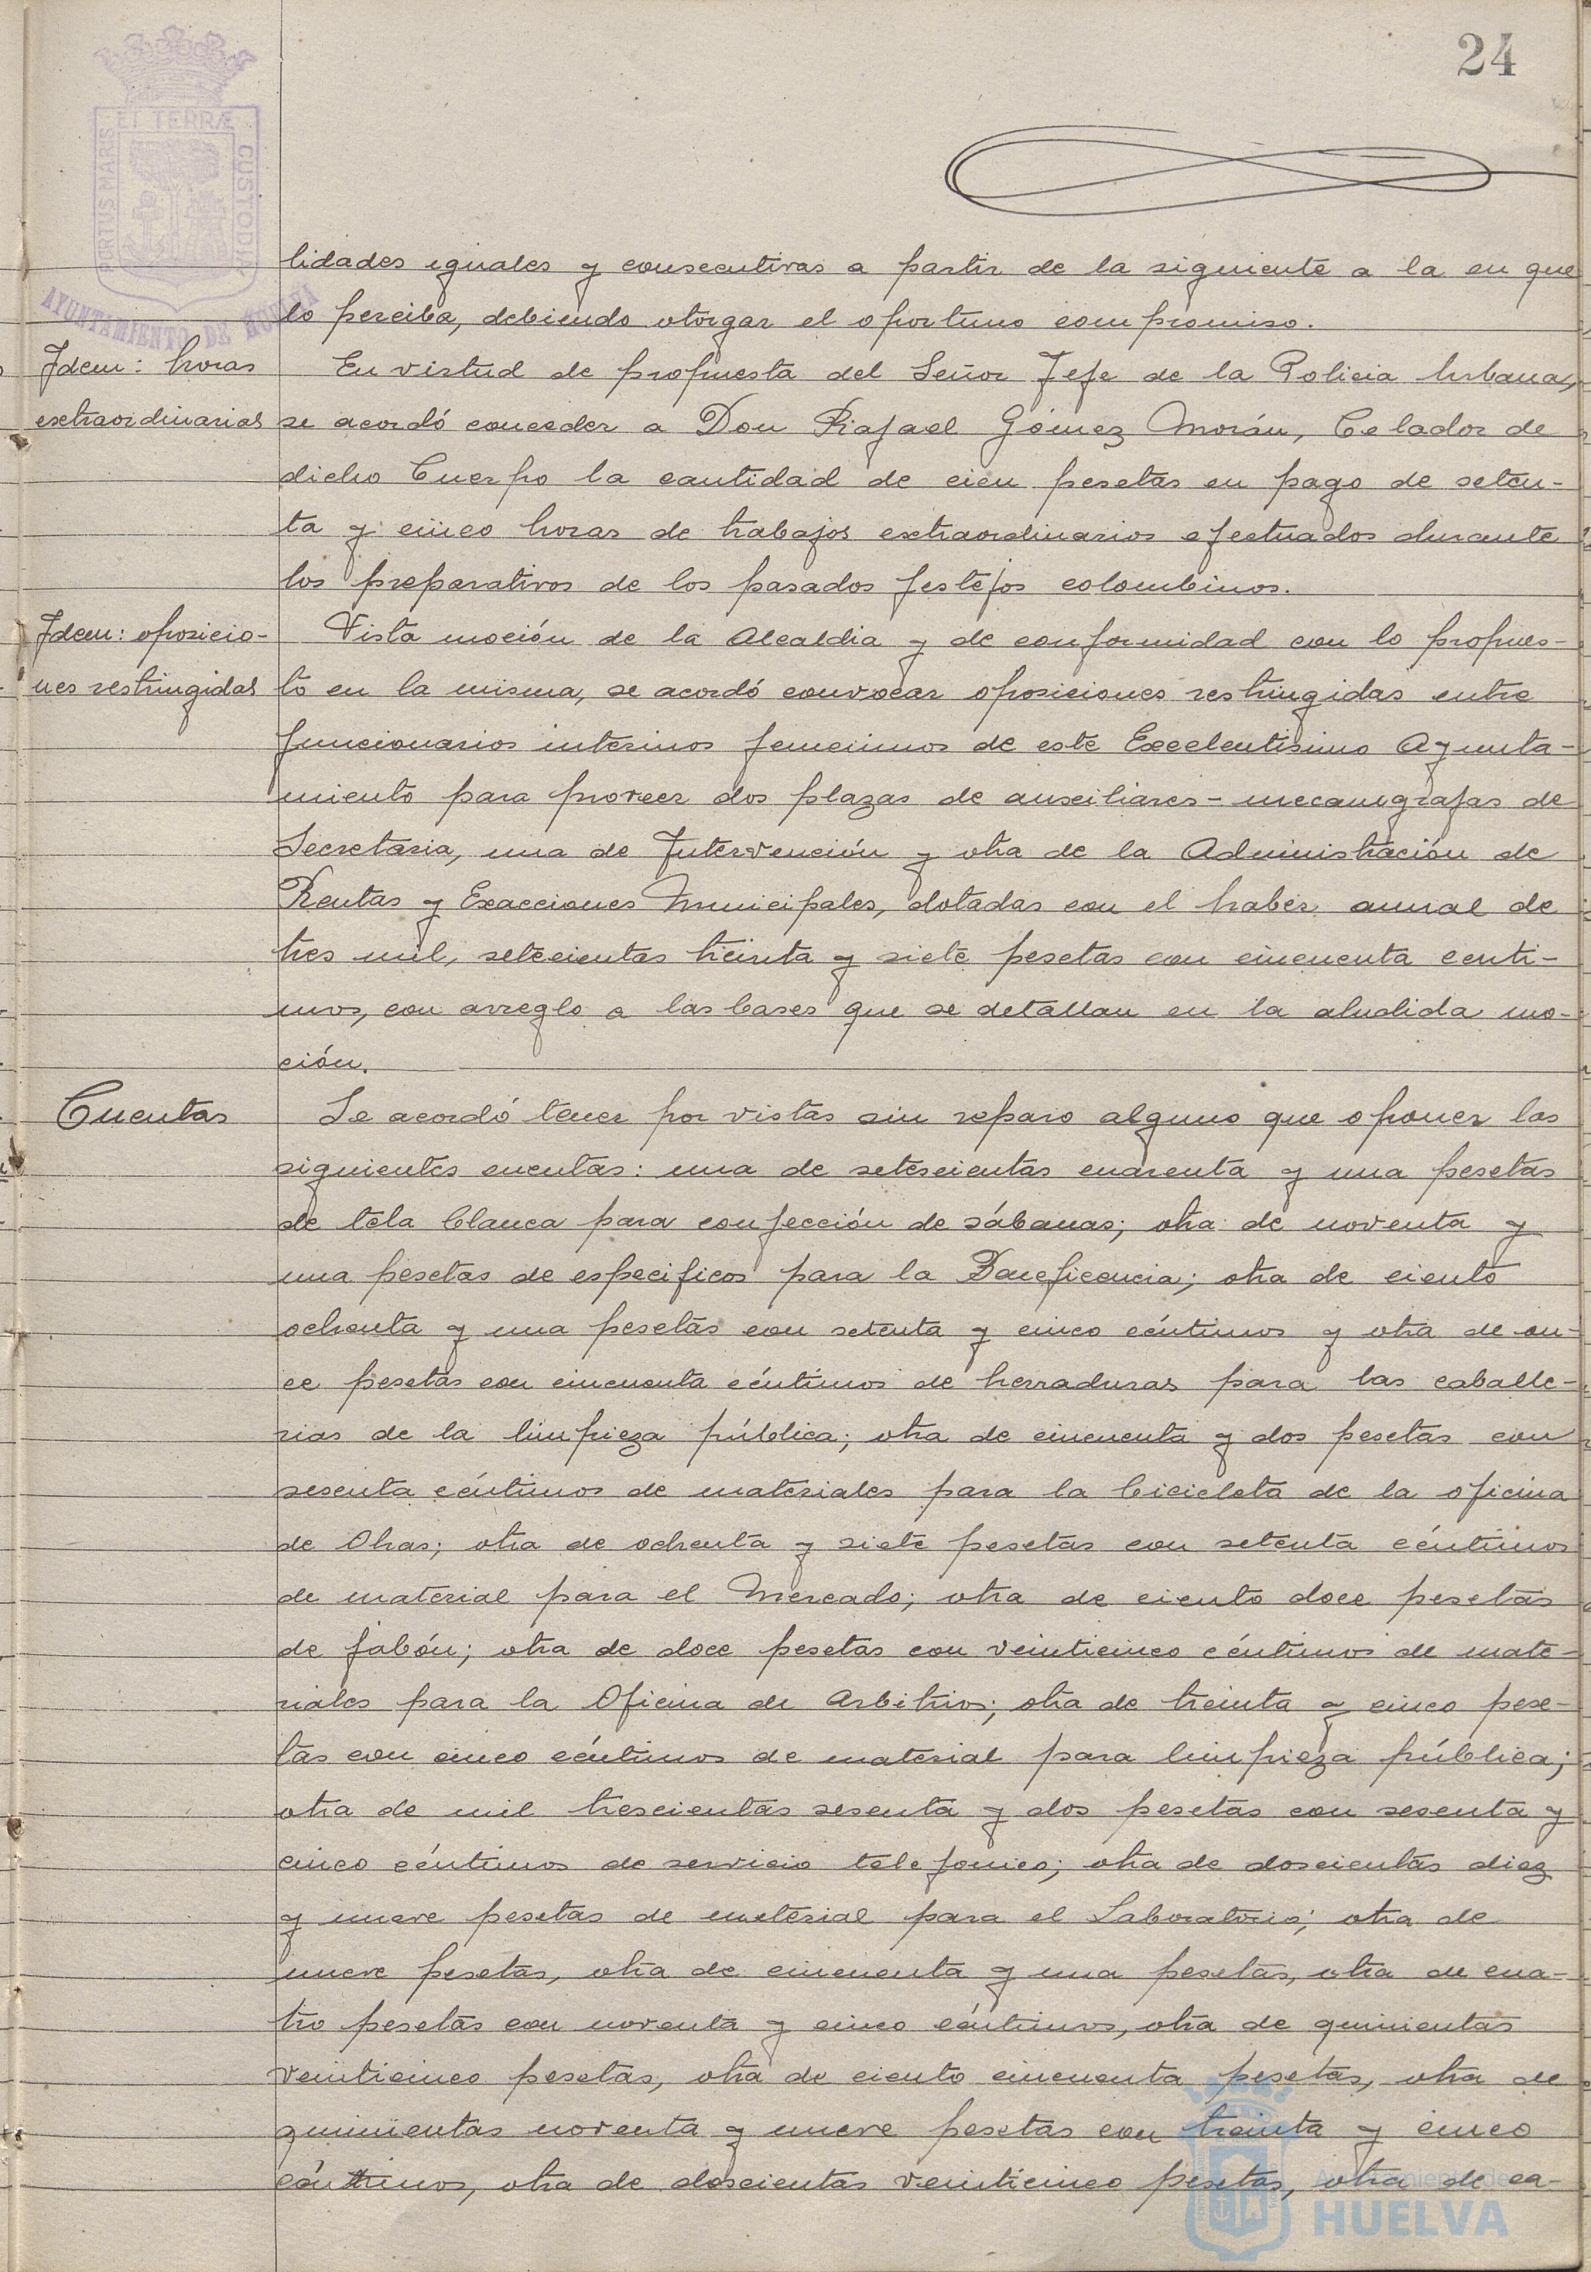 24
ET TERRÆ
PORTUS MARIS
CUSTODIA
AYUNTAMIENTO DE HUELVA
lidades iguales y consecutivas a partir de la siguiente a la en que
lo perciba, debiendo otorgar el oportuno compromiso.
Idem: horas
extraordinarias
En virtud de propuesta del Señor Jefe de la Policia Urbana,
se acordó conceder a Don Rafael Gómez Morán, Celador de
dicho Cuerpo la cantidad de cien pesetas en pago de seten-
ta y cinco horas de trabajos extraordinarios efectuados durante
los preparativos de los pasados festejos colombinos.
Idem: oposicio-
nes restringidas
Vista moción de la Alcaldia y de conformidad con lo propues-
to en la misma, se acordó convocar oposiciones restringidas entre
funcionarios interinos femeninos de este Excelentisimo Ayunta-
miento para proveer dos plazas de auxiliares-mecanografas de
Secretaria, una de Intervención y otra de la Administración de
Rentas y Exacciones Municipales, dotadas con el haber anual de
tres mil, setecientas treinta y siete pesetas con cincuenta centi-
mos, con arreglo a las bases que se detallan en la aludida mo-
ción.
Cuentas
Se acordó tener por vistas sin reparo alguno que oponer las
siguientes cuentas: una de setescientas cuarenta y una pesetas
de tela blanca para confección de sábanas; otra de noventa y
una pesetas de especificos para la Beneficencia; otra de ciento
ochenta y una pesetas con setenta y cinco céntimos y otra de on-
ce pesetas con cincuenta céntimos de herraduras para las caballe-
rias de la limpieza pública; otra de cincuenta y dos pesetas con
sesenta céntimos de materiales para la bicicleta de la oficina
de Obras; otra de ochenta y siete pesetas con setenta céntimos
de material para el Mercado; otra de ciento doce pesetas
de jabón; otra de doce pesetas con veinticinco céntimos de mate-
riales para la Oficina de Arbitrios; otra de treinta y cinco pese-
tas con cinco céntimos de material para limpieza pública;
otra de mil trescientas sesenta y dos pesetas con sesenta y
cinco céntimos de servicio telefonico; otra de doscientas diez
y nueve pesetas de material para el Laboratorio; otra de
nueve pesetas, otra de cincuenta y una pesetas, otra de cua-
tro pesetas con noventa y cinco céntimos, otra de quinientas
veinticinco pesetas, otra de ciento cincuenta pesetas, otra de
quinientas noventa y nueve pesetas con treinta y cinco
céntimos, otra de doscientas veinticinco pesetas, otra de ca-
Ayuntamiento de
HUELVA